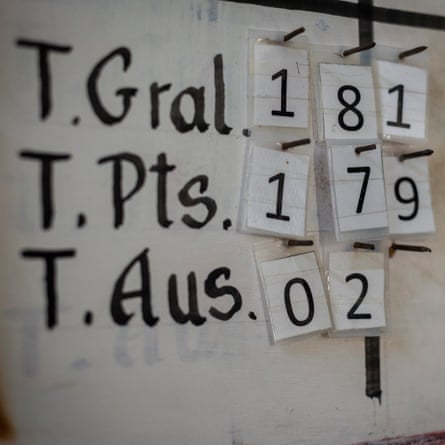 T.Gral. 181
T.Pts. 179
T.Aus. 02